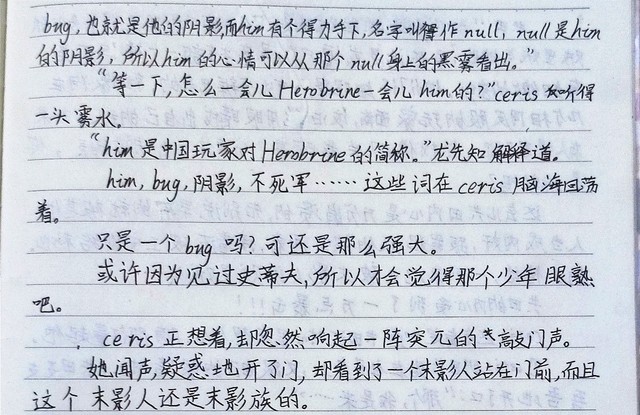 bug,也就是他的阴影,而him有个得力手下,名字叫作null,null是him
的阴影,所以him的心情可以从那个null身上的黑雾看出。”
“等一下,怎么一会儿Herobrine一会儿him的?”ceris听得
一头雾水。
“him是中国玩家对Herobrine的简称。”龙先知解释道。
him,bug,阴影,不死军……这些词在ceris脑海回荡
着。
只是一个bug吗?可还是那么强大。
或许因为见过史蒂夫,所以才会觉得那个少年眼熟
吧。
ceris正想着,却忽然响起一阵突兀的敲门声。
她闻声,疑惑地开了门,却看到了一个末影人站在门前,而且
这个末影人还是末影族的。